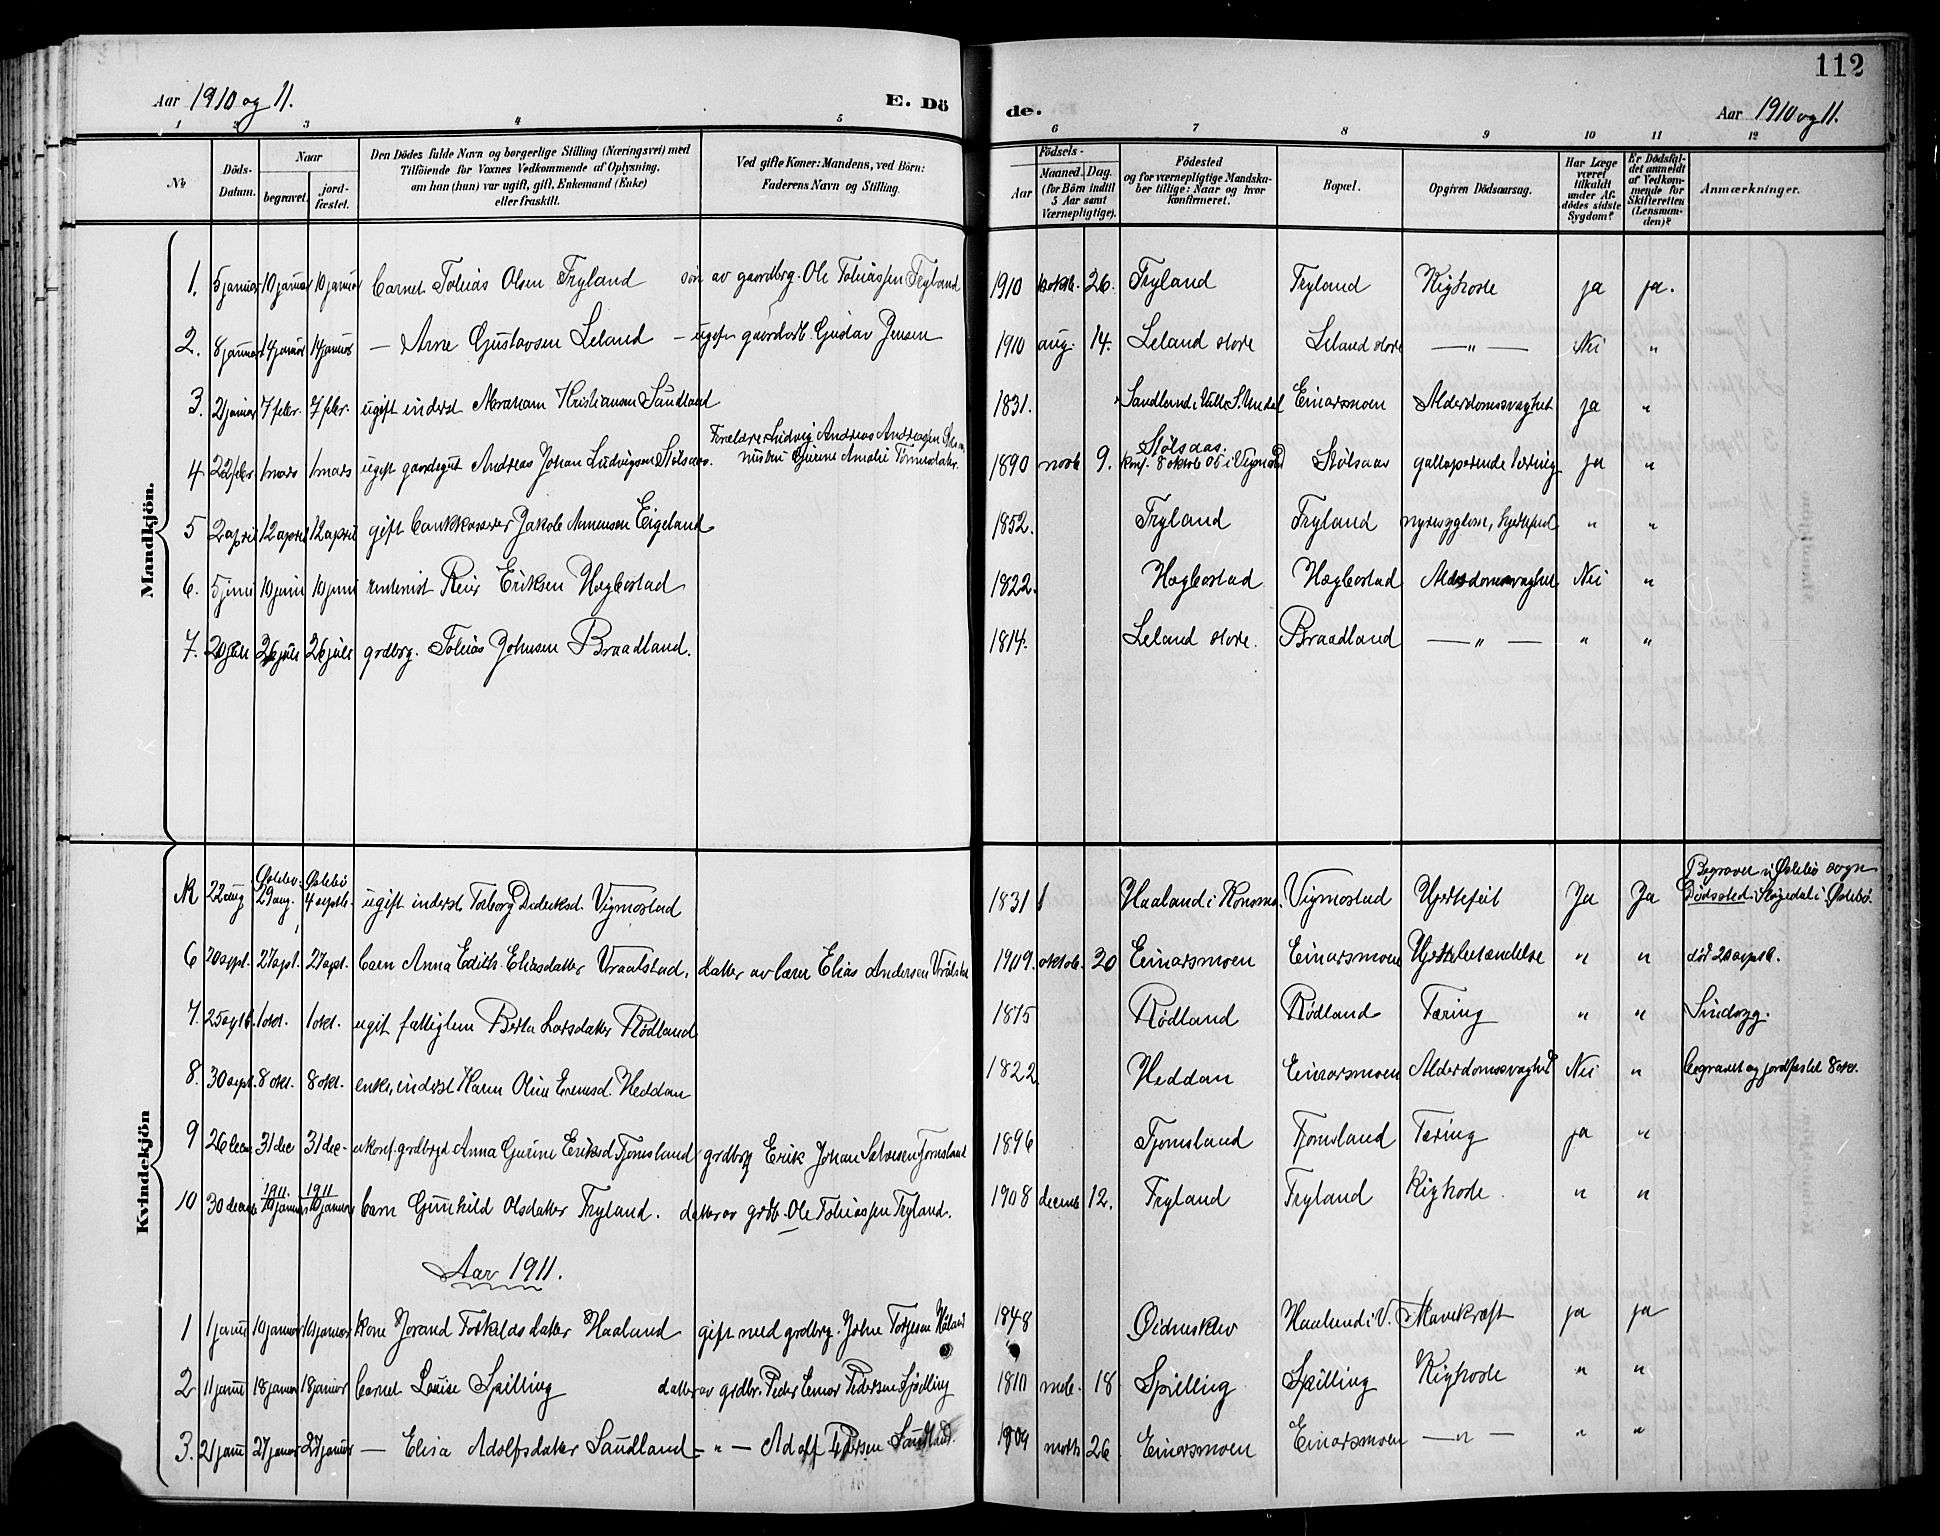 112
Aar 1910 og 11.
E. Dö
de.
Aar 1910 og 11.
1 2 3 4 5 6 7 8 9 10 11 12
No
Döds-Datum.
Naar
begravet.
jord-fæstet.
Den Dödes fulde Navn og borgerlige Stilling (Næringsvei) med
Tilföiende for Voxnes Vedkommende af Oplysning,
om han (hun) var ugift, gift, Enkemand (Enke)
eller fraskilt.
Ved gifte Koner: Mandens, ved Börn:
Faderens Navn og Stilling.
Födsels-
Aar
Maaned. Dag.
(for Börn indtil
5 Aar samt
Værnepligtige).
Födested
og for værnepligtige Mandska-
ber tillige: Naar og hvor
konfirmeret.
Bopæl.
Opgiven Dödsaarsag.
Har Læge
været
tilkaldt
under Af-
dödes sidste
Sygdom?
Er Dödsfal-
det anmeldt
af Vedkom-
mende for
Skifteretten
(Lensman-
den)?
Anmærkninger.
Mandkjön.
1. 5 januar 10 januar 10 januar barnet Tobias Olsen Tryland søn av gaardbrg. Ole Tobiassen Tryland 1910 26. Tryland Tryland Kighoste ja ja.
2. 8 januar 14 januar 14 januar — Arne Gustavsen Leland — ugift Gustav Jensen 1910 aug. 14. Leland store Leland store — " — Nei "
3. 21 januar 7 febr. 7 febr. ugift inderst Abraham Kristiansen Saudland 1831. Einarsmoen Alderdomssvaghet ja "
4 22 febr 1 mars 1 mars ugift Andreas Johan Ludvigsen Stølsaas. Forældre: Ludvig Andreas Andreasen
hustru Gurine Amalie Tønnesdatter. 1890 novb 9. Stølsaas.
konf. 8 oktob 05 i Vigmostad Stølsaas galloperende tæring ja "
5 2 april 12 april 12 april gift bankkasserer Jakob Eigeland 1852. Tryland Tryland nyresygdom, hjertefeil " "
6. 5 juni 10 juni 10 juni rentenist Reier Eriksen Hægbostad 1822. Hægbostad Hægbostad Alderdomssvaghet Nei "
7. 20 juli 26 juli 26 juli grdbrg. Tobias Johnsen Braadland. 1814. Leland store. Braadland — " — " "
Kvindekjön
22 aug Øslebø
29 aug. Øslebø
4 septb. ugift inderst Torborg Dideriksd. Vigmostad 1831 Haaland i Konsmo. Vigmostad Hjertefeil Ja Ja Begravet i Øslebø sogn
Dødssted i Øslebø.
6 20 sept. 27 spt. 27 spt. barn Anna Edith Eliasdatter Vraalstad, datter av lærer Elias Andersen 1909. oktob. 30 Einarsmoen Einarsmoen Hjertebetændelse " " død 20 septb.
7. 25 septb. 1 okt. 1 okt. ugift fattiglem Berta Larsdatter Rødland 1875 Rødland Rødland Tæring " " Sindssyg.
8. 30 sept. 8 okt. 8 okt. enke, inderst Karen Oline Heddan 1822 Heddan Einarsmoen Alderdomssvaghed Nei " begravet og jordfæstet 8 okt.
9 26 decm 31 dec 31 dec. ukonf. Anna Gurine Eriksd Fjomsland grdbrg Erik Johan Salvesen Fjomsland 1896 Fjomsland Fjomsland Tæring ja "
10 30 decmb 1911
10 januar 1911
10 januar barn Gunhild Olsdatter Tryland. datter av grdb. Ole Tobiassen Tryland. 1908 decemb 12. Tryland Tryland Kighoste. " "
Aar 1911.
1 1 janu 10 januar 10 januar kone Jorand Torkeldsdatter Haaland gift med grdbrg. John Torjesen Haaland 1848 Øidnesklev Haaland i V. Mavekræft ja ja
2 11 janu 18 januar 18 januar barnet Louise Spilling datter av grdbr. Peder Pedersen Spilling 18 Spilling Spilling Kighoste " "
3. 21 janu 27 januar 27 januar — Elisa Adolfsdatter Saudland — " — Adolf Saudland. 1909 26 Einarsmoen Einarsmoen — " — " "